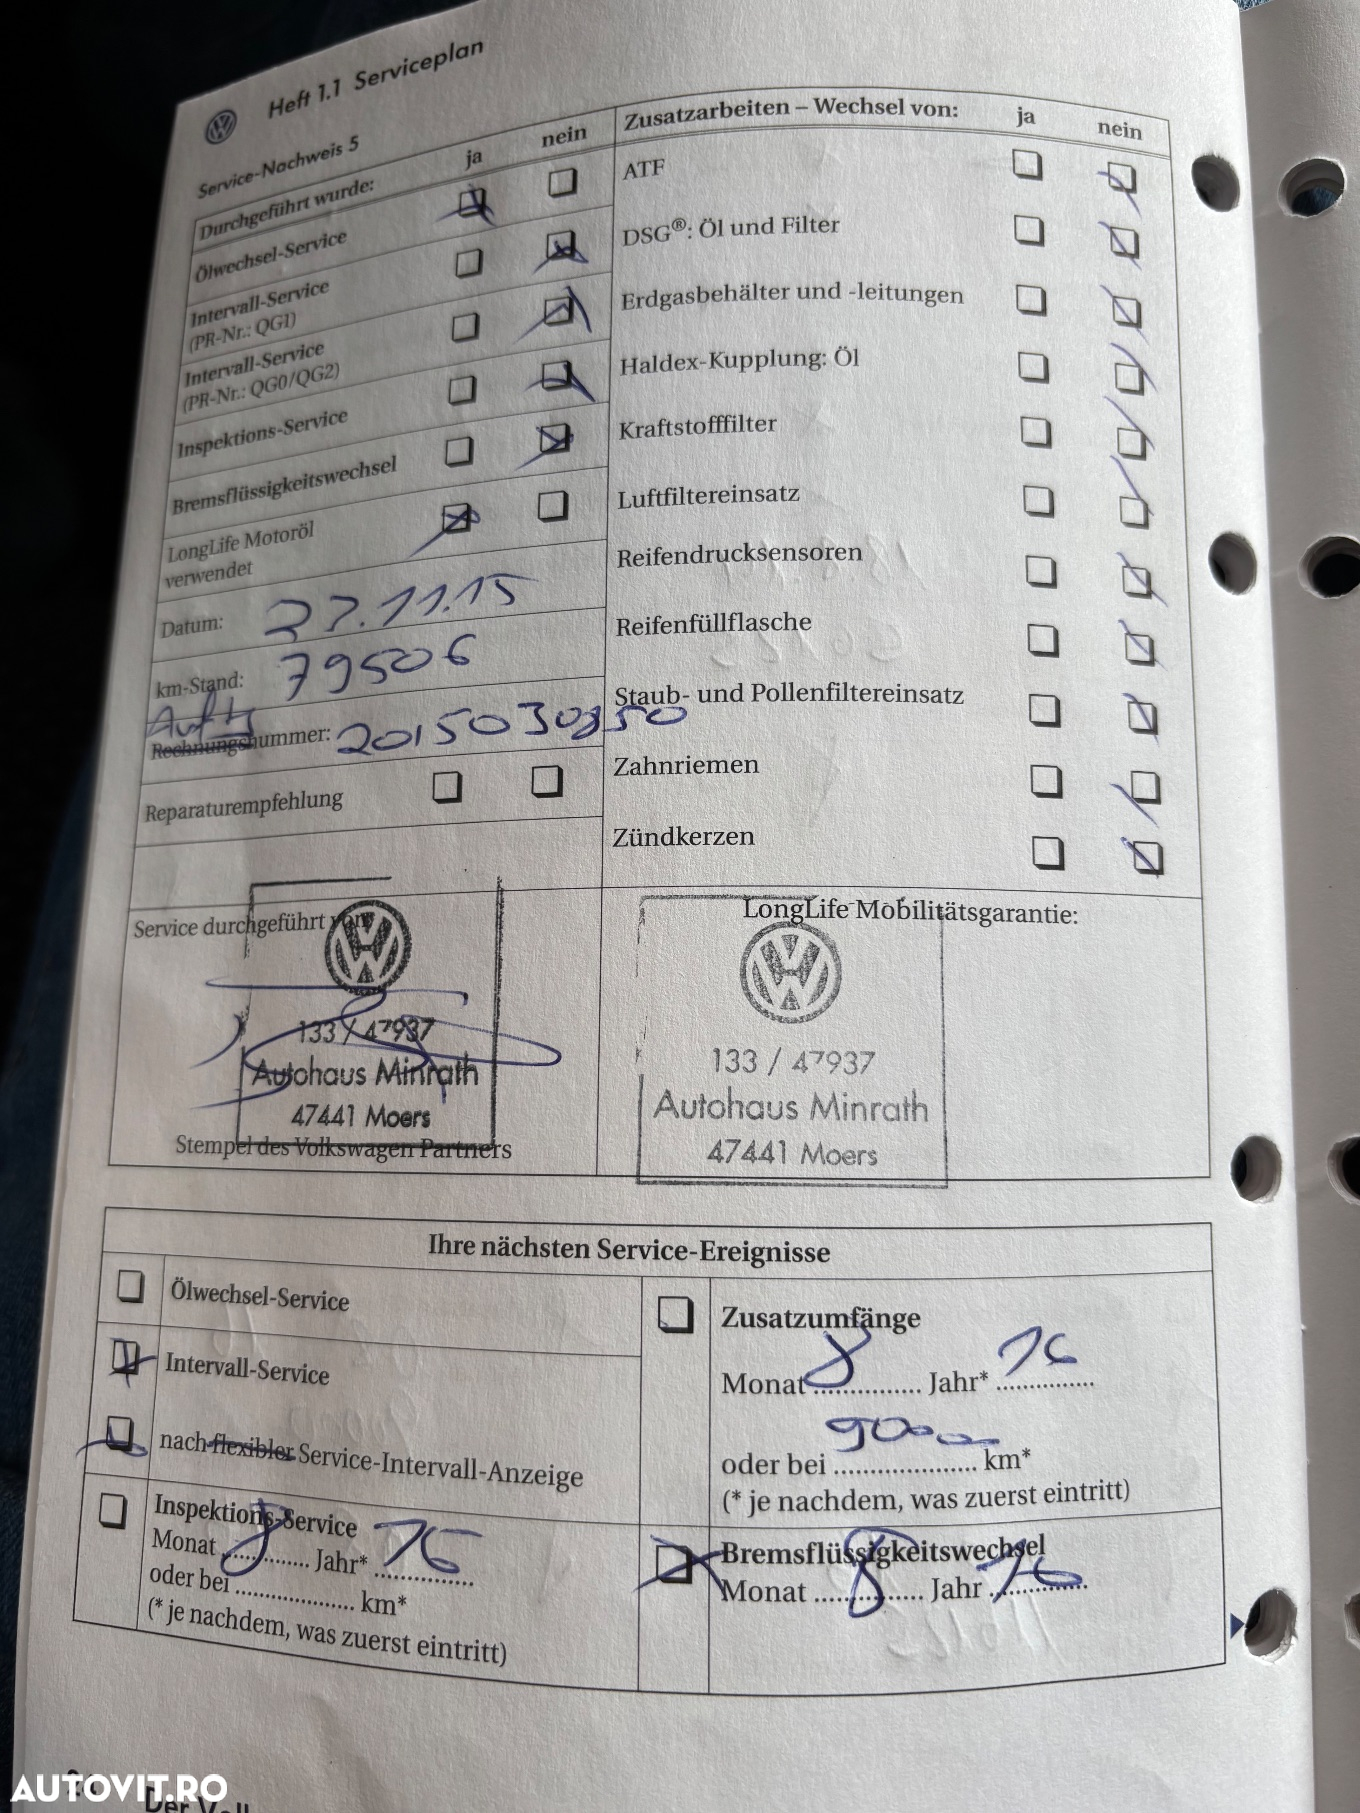 Heft 1.1 Serviceplan
Service-Nachweis 5
Durchgeführt wurde: ja nein
Ölwechsel-Service
Intervall-Service
(PR-Nr.: QG1)
Intervall-Service
(PR-Nr.: QG0/QG2)
Inspektions-Service
Bremsflüssigkeitswechsel
LongLife Motoröl
verwendet
Datum: 27.11.15
km-Stand: 79506
Rechnungsnummer: 2015030850
Reparaturempfehlung
Zusatzarbeiten – Wechsel von: ja nein
ATF
DSG®: Öl und Filter
Erdgasbehälter und -leitungen
Haldex-Kupplung: Öl
Kraftstofffilter
Luftfiltereinsatz
Reifendrucksensoren
Reifenfüllflasche
Staub- und Pollenfiltereinsatz
Zahnriemen
Zündkerzen
Service durchgeführt von:
133 / 47937
Autohaus Minrath
47441 Moers
Stempel des Volkswagen Partners
LongLife Mobilitätsgarantie:
133 / 47937
Autohaus Minrath
47441 Moers
Ihre nächsten Service-Ereignisse
Ölwechsel-Service
Intervall-Service
nach flexibler Service-Intervall-Anzeige
Inspektions-Service
Monat 8 Jahr* 16
oder bei .................... km*
(* je nachdem, was zuerst eintritt)
Zusatzumfänge
Monat 8 Jahr* 16
90000
oder bei .................... km*
(* je nachdem, was zuerst eintritt)
Bremsflüssigkeitswechsel
Monat 8 Jahr 16
AUTOVIT.RO